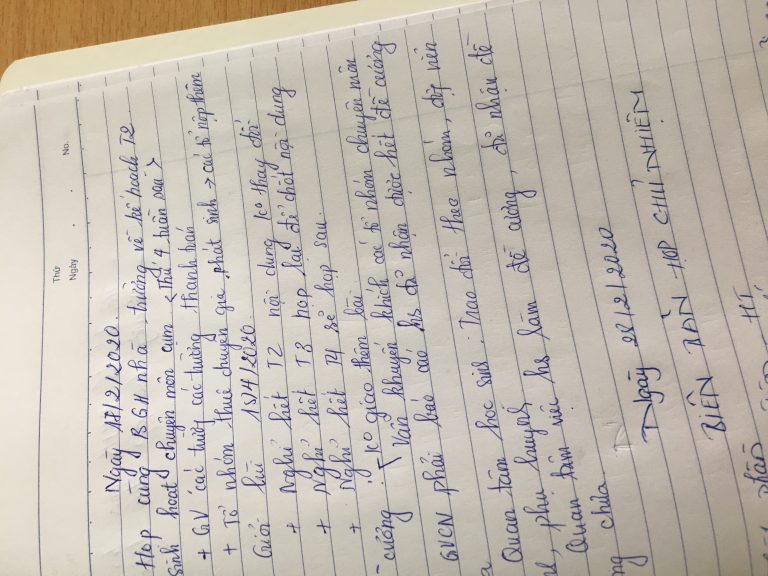 Thứ
Ngày
No.
Ngày 18/2/2020.
Họp cùng BGH nhà trường về kế hoạch T2
Sinh hoạt chuyên môn cụm <thứ 4 tuần sau>
+ GV các trường các trường thành bản
+ Tổ nhóm thuê chuyên gia phát sinh → các tổ nộp thêm
Cuối kì 15/4/2020.
+ Nghỉ hết T2 nội dung ko thay đổi
+ Nghỉ hết T3 họp lại để chốt nội dung
+ Nghỉ hết T4 sẽ họp sau.
ko giao thêm bài
cương Vẫn khuyến khích các tổ nhóm chuyên môn
GVCN phải báo cáo hs đã nhận được hết đề cương
Quan tâm học sinh. Trao đổi theo nhóm, lớp nên
, phụ huynh
Quan tâm việc hs làm đề cương, đã nhận đề
chưa
Ngày 28/2/2020
BIÊN BẢN HỌP CHỦ NHIỆM